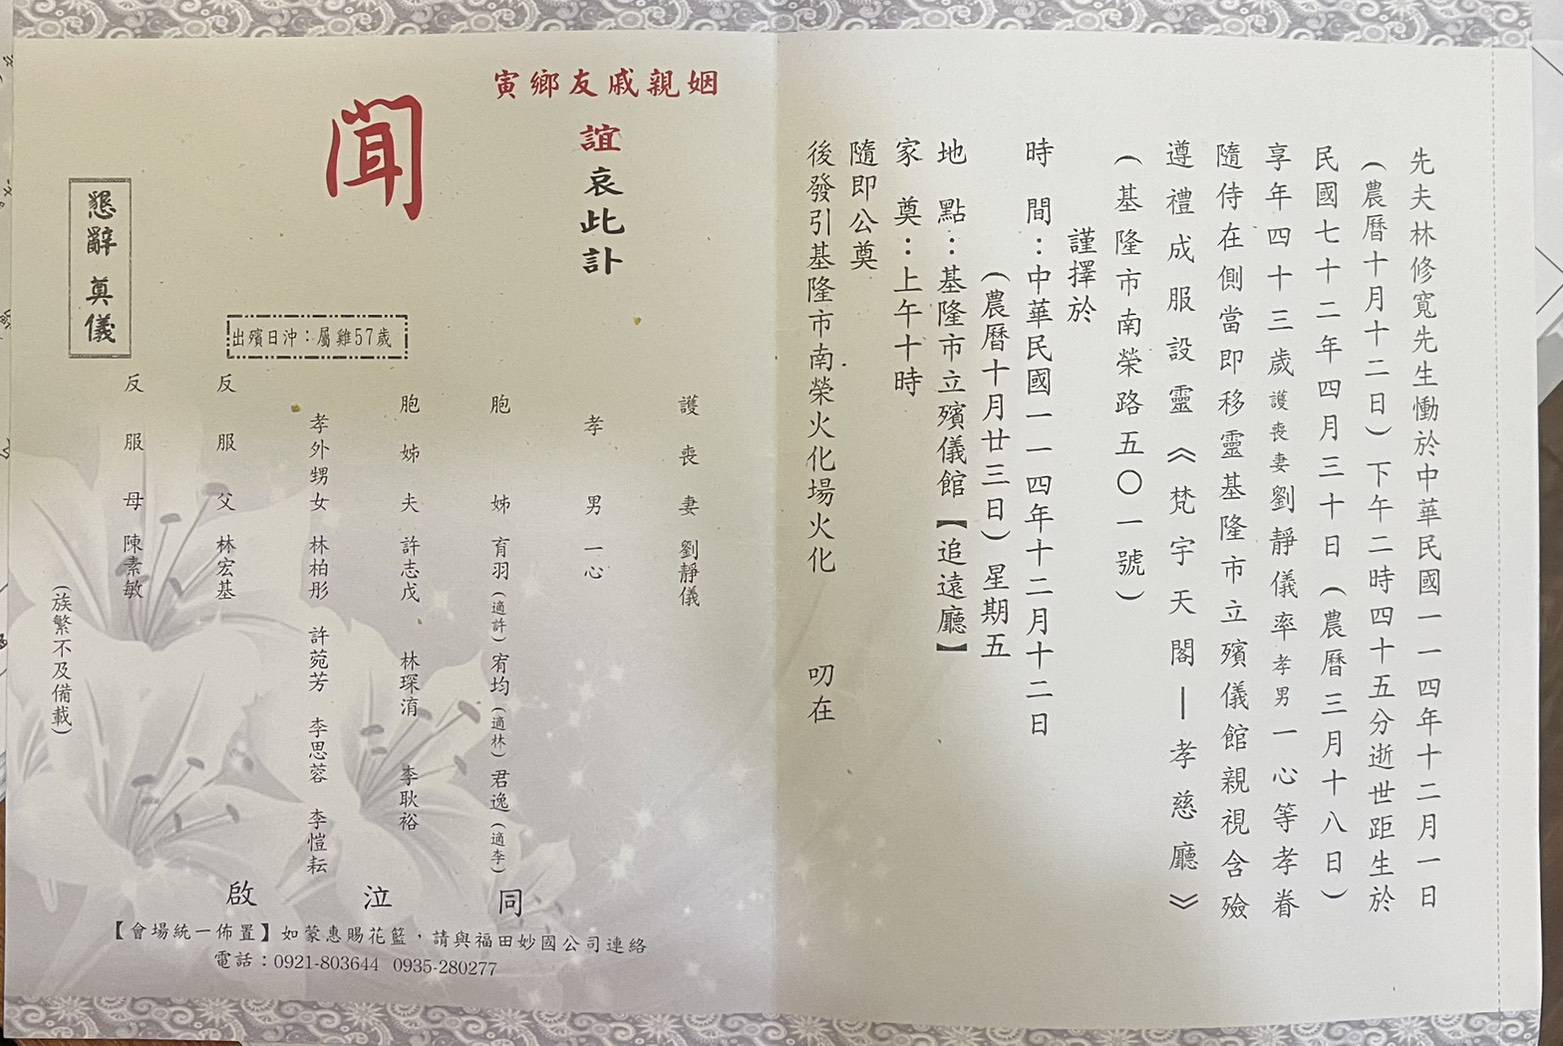 先夫林修寬先生慟於中華民國一一四年十二月一日
(農曆十月十二日)下午二時四十五分逝世距生於
民國七十二年四月三十日(農曆三月十八日)
享年四十三歲護喪妻劉靜儀率孝男一心等孝眷
隨侍在側當即移靈基隆市立殯儀館親視含殮
遵禮成服設靈《梵宇天閣—孝慈廳》
(基隆市南榮路五〇一號)
謹擇於
時間:中華民國一一四年十二月十二日
(農曆十月廿三日)星期五
地點:基隆市立殯儀館【追遠廳】
家奠:上午十時
隨即公奠
後發引基隆市南榮火化場火化 叨在
寅鄉友戚親姻
誼哀此訃
聞
懇辭 奠儀
出殯日沖:屬雞57歲
護喪妻 劉靜儀
孝男 一心
胞姊 育羽(適許)宥均(適林)君逸(適李)
胞姊夫 許志戊 林琛淯 李耿裕
孝外甥女 林柏彤 許菀芳 李思蓉 李愷耘
反服父 林宏基
反服母 陳素敏
(族繁不及備載)
同 泣 啟
【會場統一佈置】如蒙惠賜花籃,請與福田妙國公司連絡
電話:0921-803644 0935-280277